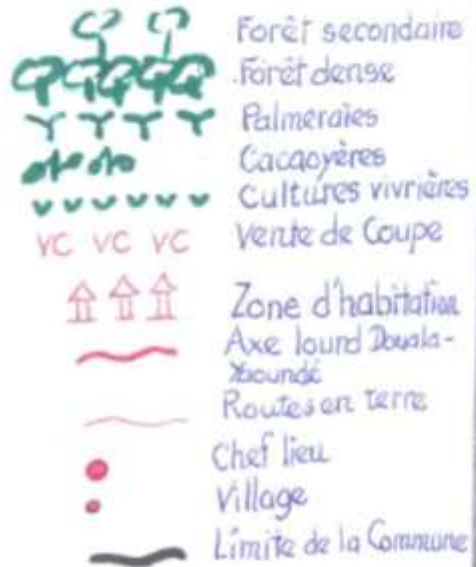 Forêt secondaire
Forêt dense
Palmeraies
Cacaoyères
Cultures vivrières
VC VC VC Vente de Coupe
Zone d'habitation
Axe lourd Douala-
Yaoundé
Routes en terre
Chef lieu
Village
Limite de la Commune